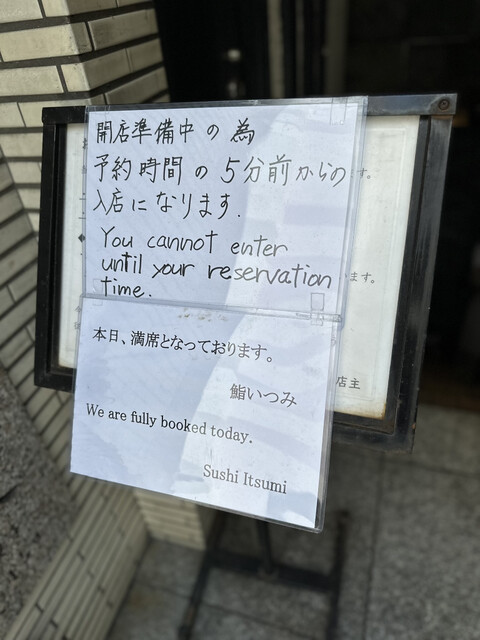 開店準備中の為
予約時間の5分前からの
入店になります.
You cannot enter
until your reservation
time.
本日、満席となっております。
鮨いつみ
We are fully booked today.
Sushi Itsumi
す。
ます。
店主